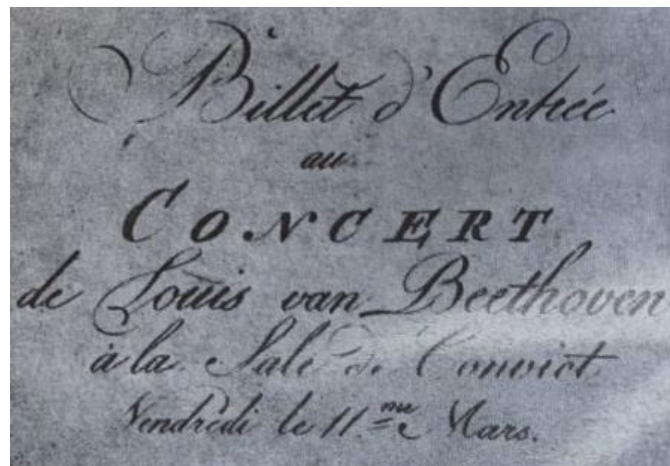 Billet d'Entrée
au
CONCERT
de Louis van Beethoven
à la Sale de Convict
Vendredi le 11.me Mars.